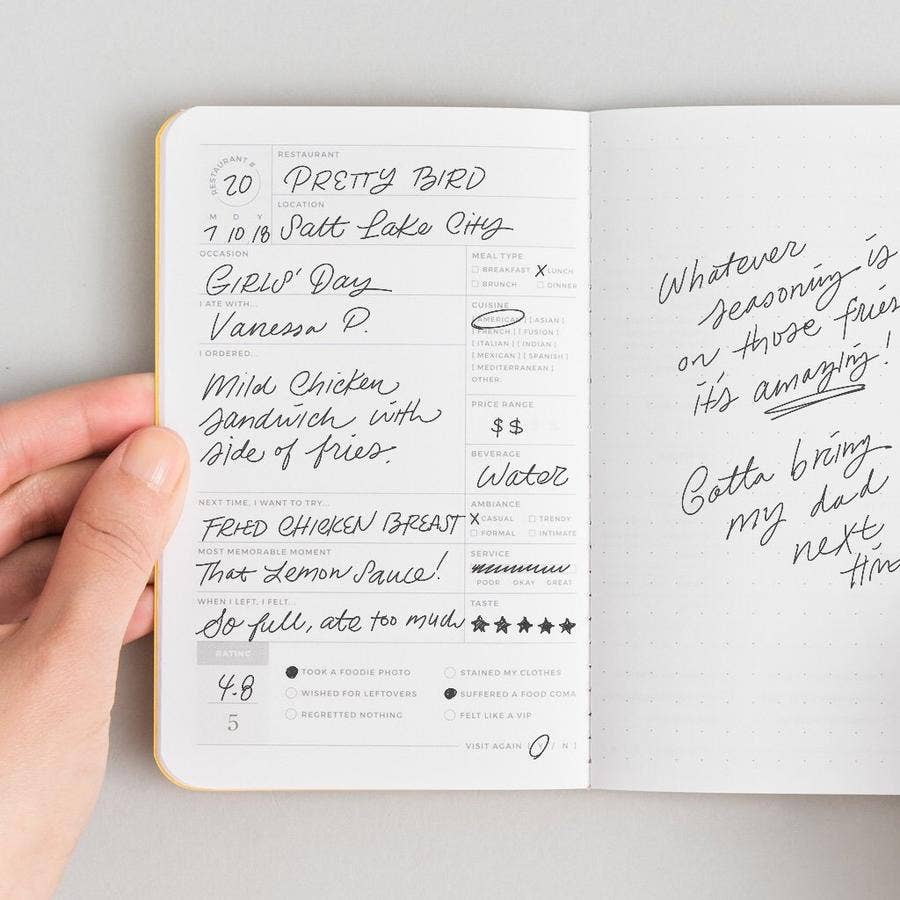 RESTAURANT #
20
RESTAURANT
PRETTY BIRD
M D Y
7 10 18
LOCATION
Salt Lake City
OCCASION
GIRLS' Day
MEAL TYPE
BREAKFAST X LUNCH
BRUNCH DINNER
I ATE WITH...
Vanessa P.
CUISINE
[ AMERICAN ] [ ASIAN ]
[ FRENCH ] [ FUSION ]
[ ITALIAN ] [ INDIAN ]
[ MEXICAN ] [ SPANISH ]
[ MEDITERRANEAN ]
OTHER:
I ORDERED...
Mild Chicken
sandwich with
side of fries.
PRICE RANGE
$$
BEVERAGE
Water
NEXT TIME, I WANT TO TRY...
FRIED CHICKEN BREAST
AMBIANCE
X CASUAL TRENDY
FORMAL INTIMATE
MOST MEMORABLE MOMENT
That Lemon Sauce!
SERVICE
POOR OKAY GREAT
WHEN I LEFT, I FELT...
So full, ate too much
TASTE
RATING
4.8
5
TOOK A FOODIE PHOTO
WISHED FOR LEFTOVERS
REGRETTED NOTHING
STAINED MY CLOTHES
SUFFERED A FOOD COMA
FELT LIKE A VIP
VISIT AGAIN [ Y / N ]
Whatever
seasoning is
on those fries
it's amazing!
Gotta bring
my dad
next